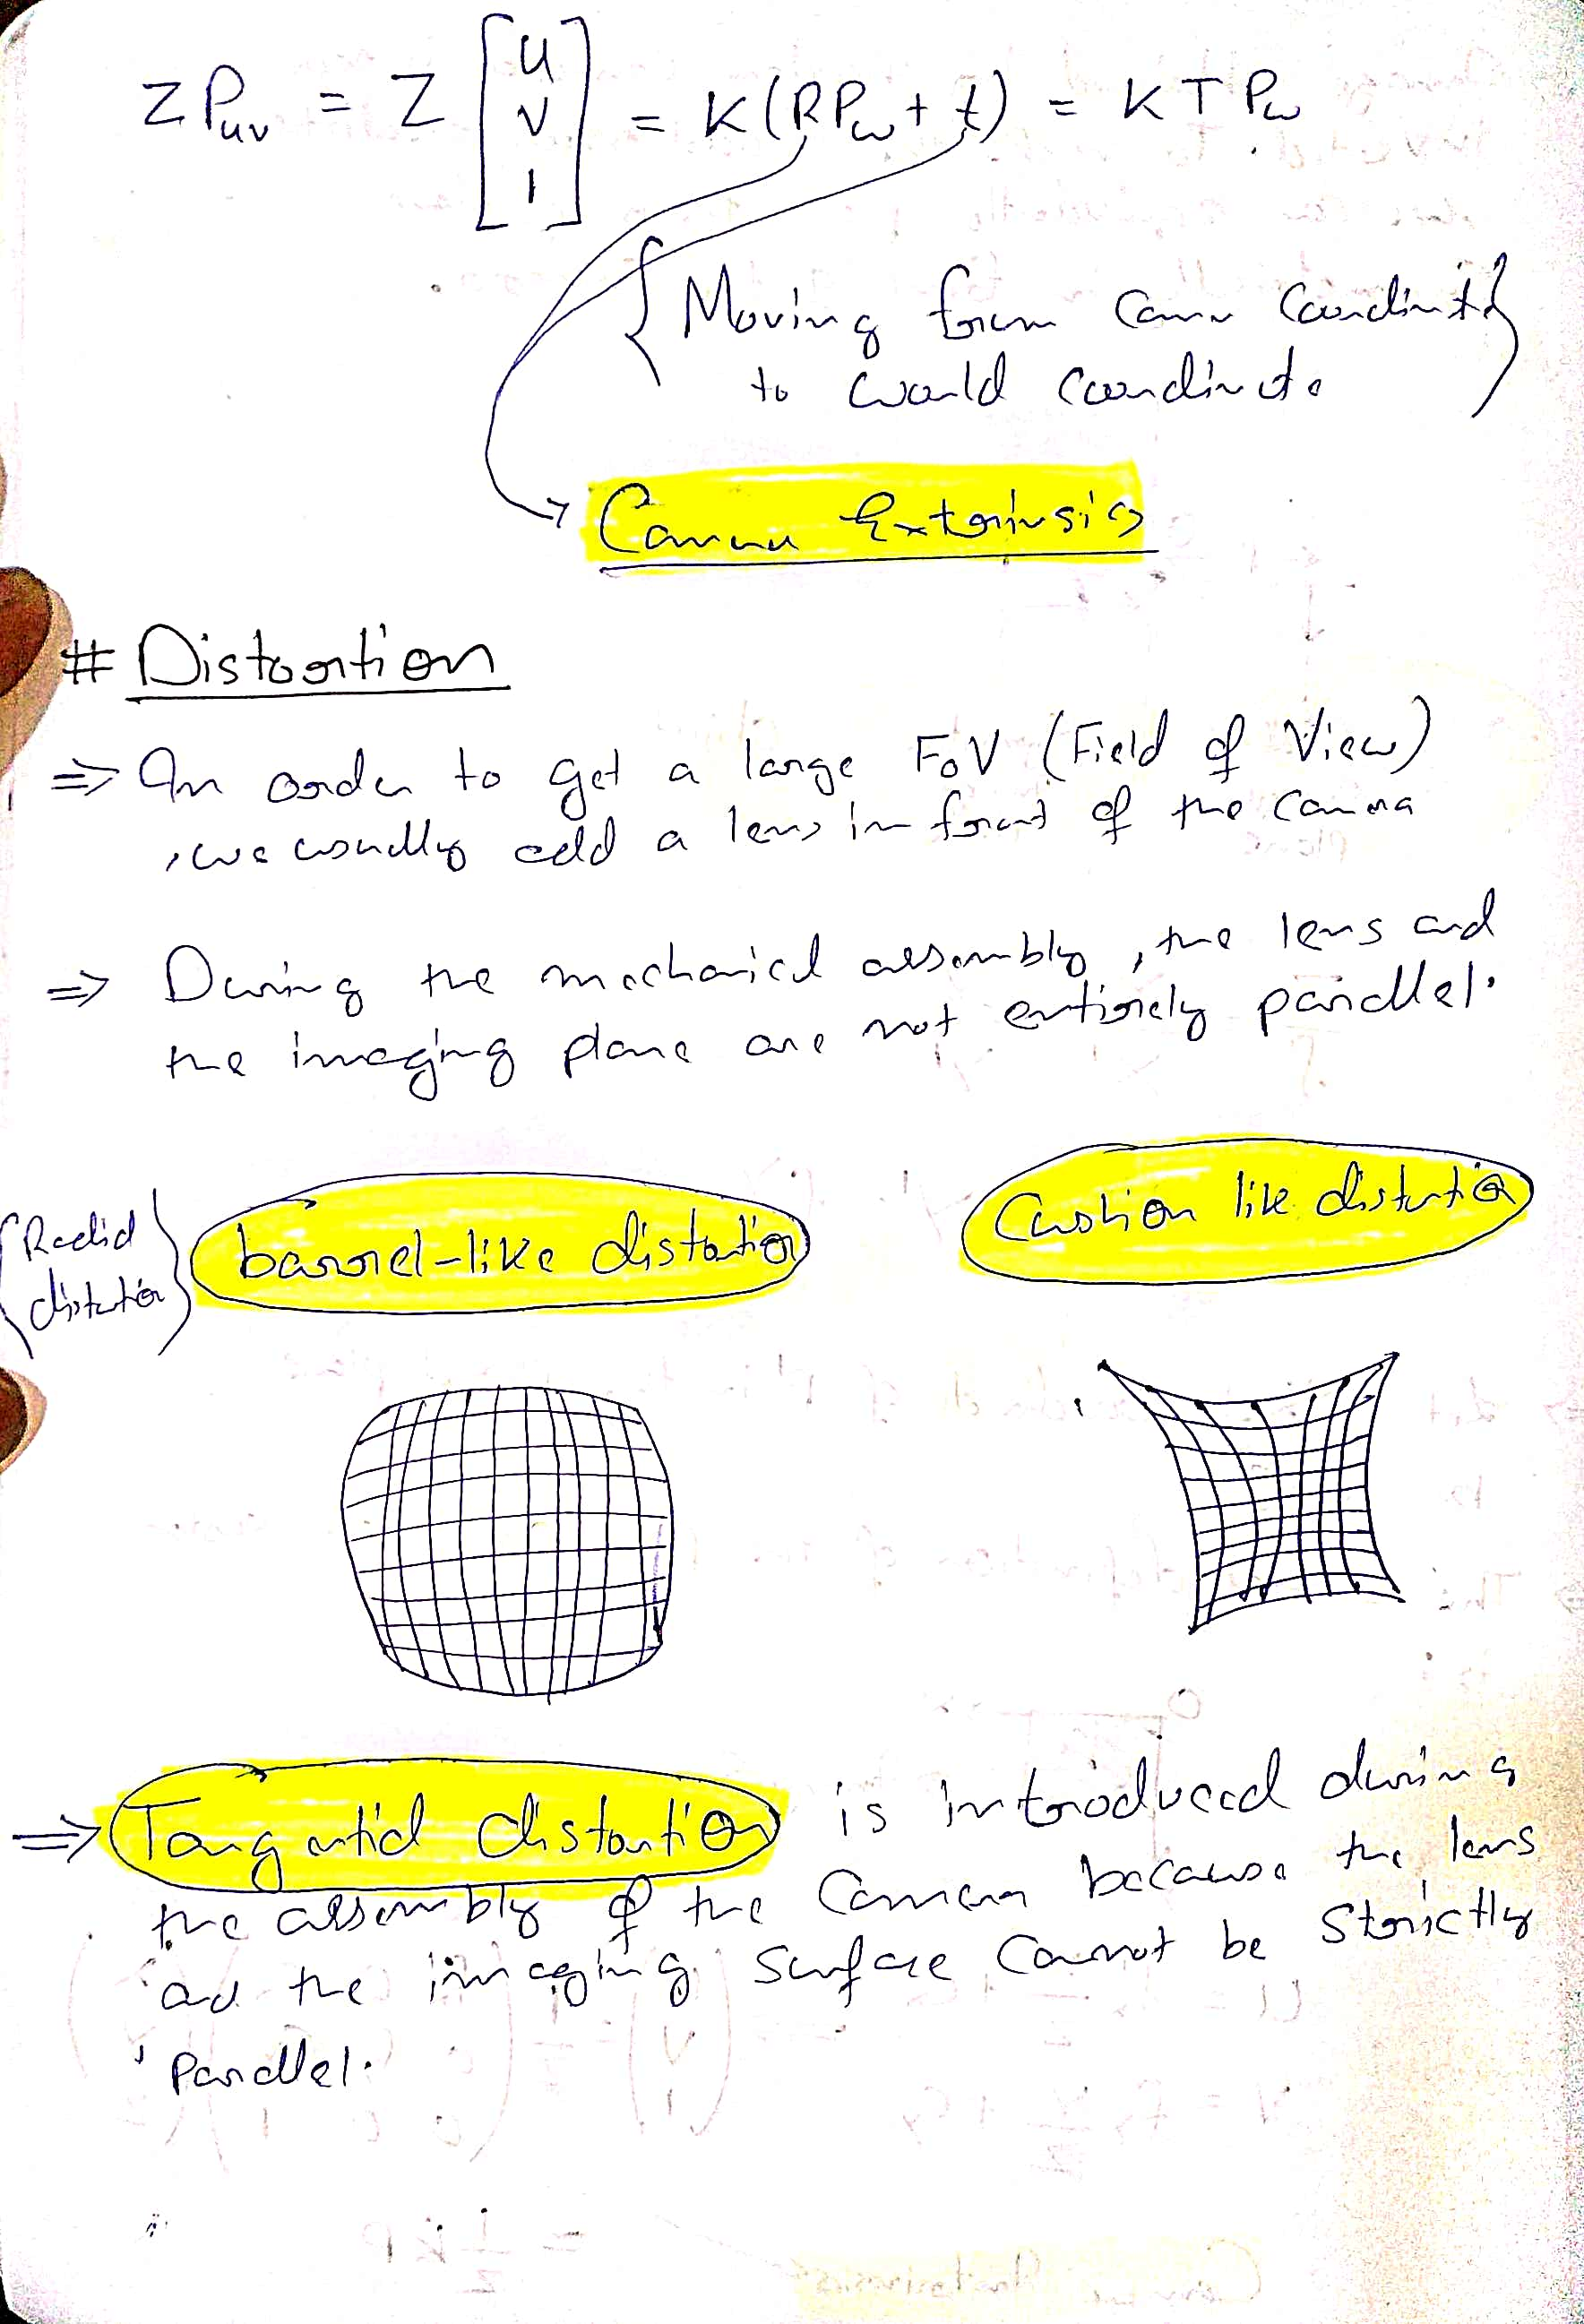 Z P_uv = Z [u v 1] = K(RP_w + t) = KTP_w
{Moving from Camera Coordinate
to World Coordinate}
→ Camera Extrinsics
# Distortion
⇒ In order to get a large FoV (Field of View)
, we usually add a lens in front of the camera
⇒ During the mechanical assembly, the lens and
the imaging plane are not entirely parallel.
{Radial
distortion}
barrel-like distortion
Cushion like distortion
⇒ Tangential distortion is introduced during
the assembly of the Camera because the lens
and the imaging surface cannot be strictly
Parallel.